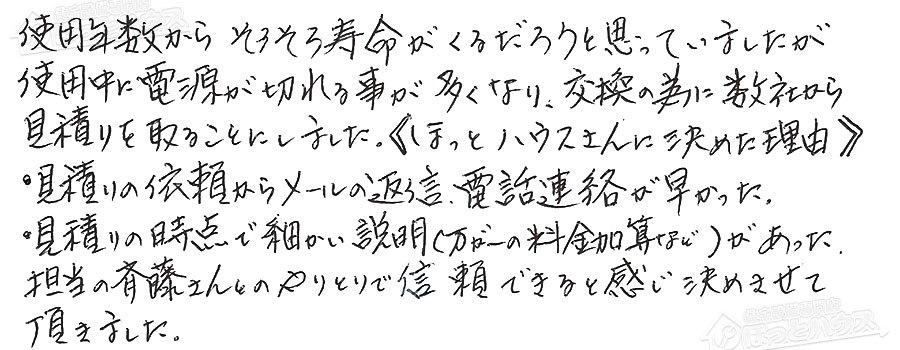 使用年数から そろそろ寿命がくるだろうと思っていましたが
使用中に電源が切れる事が多くなり、交換の為に数社から
見積りを取ることにしました。《ほっとハウスさんに決めた理由》
・見積りの依頼からメールの返信、電話連絡が早かった。
・見積りの時点で細かい説明(万が一の料金加算など)があった。
担当の斉藤さんとのやりとりで信頼できると感じ決めさせて
頂きました。
ほっとハウス